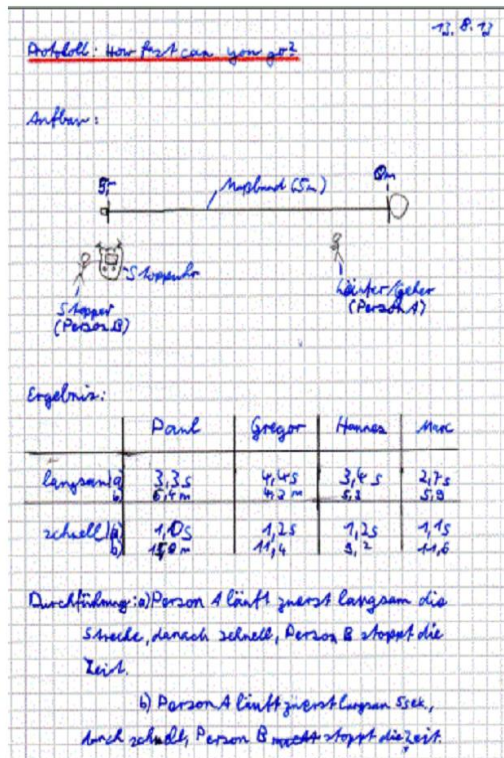 13.8.13
Protokoll: How fast can you go?
Aufbau:
5m 0m
Maßband (5m)
Stoppuhr
Stopper
(Person B)
Läufer/Geher
(Person A)
Ergebnis:
Paul Gregor Hannes Marc
langsam a) 3,3s 4,4s 3,4s 2,7s
b) 6,4m 4,2m 5,3 5,9
schnell a) 1,0s 1,2s 1,2s 1,1s
b) m 11,4 9,2 11,6
Durchführung: a) Person A läuft zuerst langsam die
Strecke, danach schnell, Person B stoppt die
Zeit.
b) Person A läuft zuerst langsam 5sek,
schnell, Person B stoppt die Zeit.